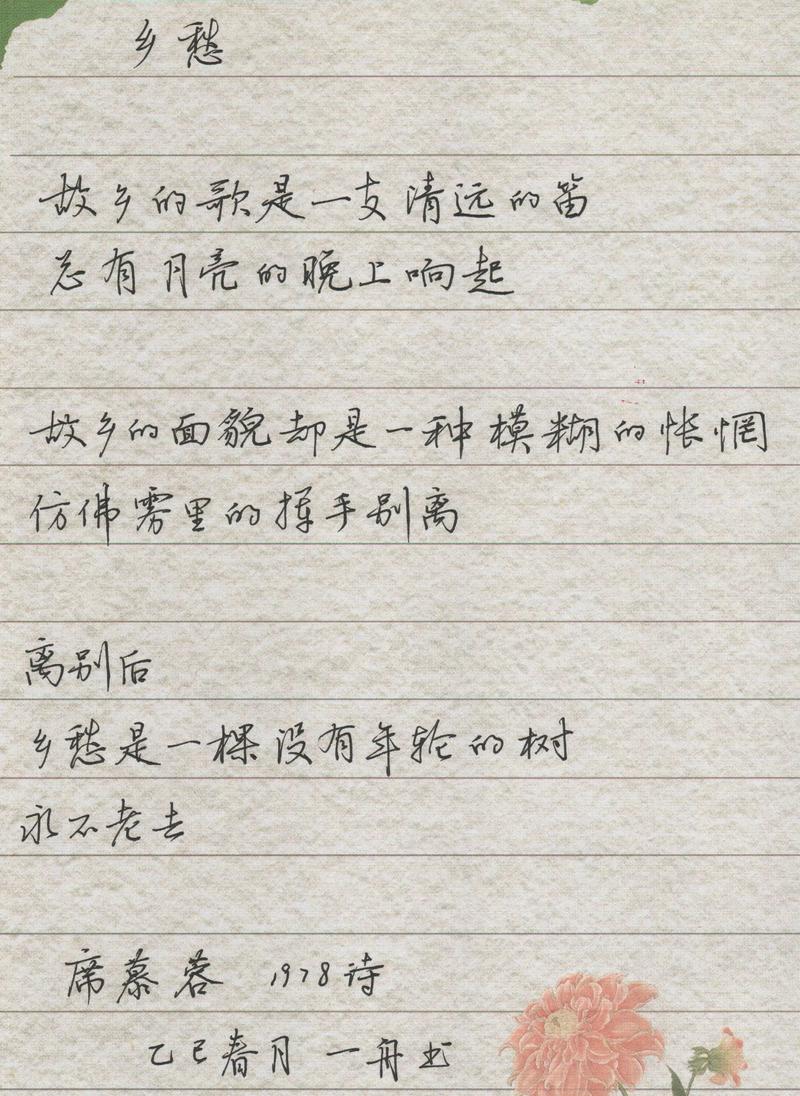 乡愁
故乡的歌是一支清远的笛
总有月亮的晚上响起
故乡的面貌却是一种模糊的怅惘
仿佛雾里的挥手别离
离别后
乡愁是一棵没有年轮的树
永不老去
席慕蓉 1978诗
乙巳春月 一舟书